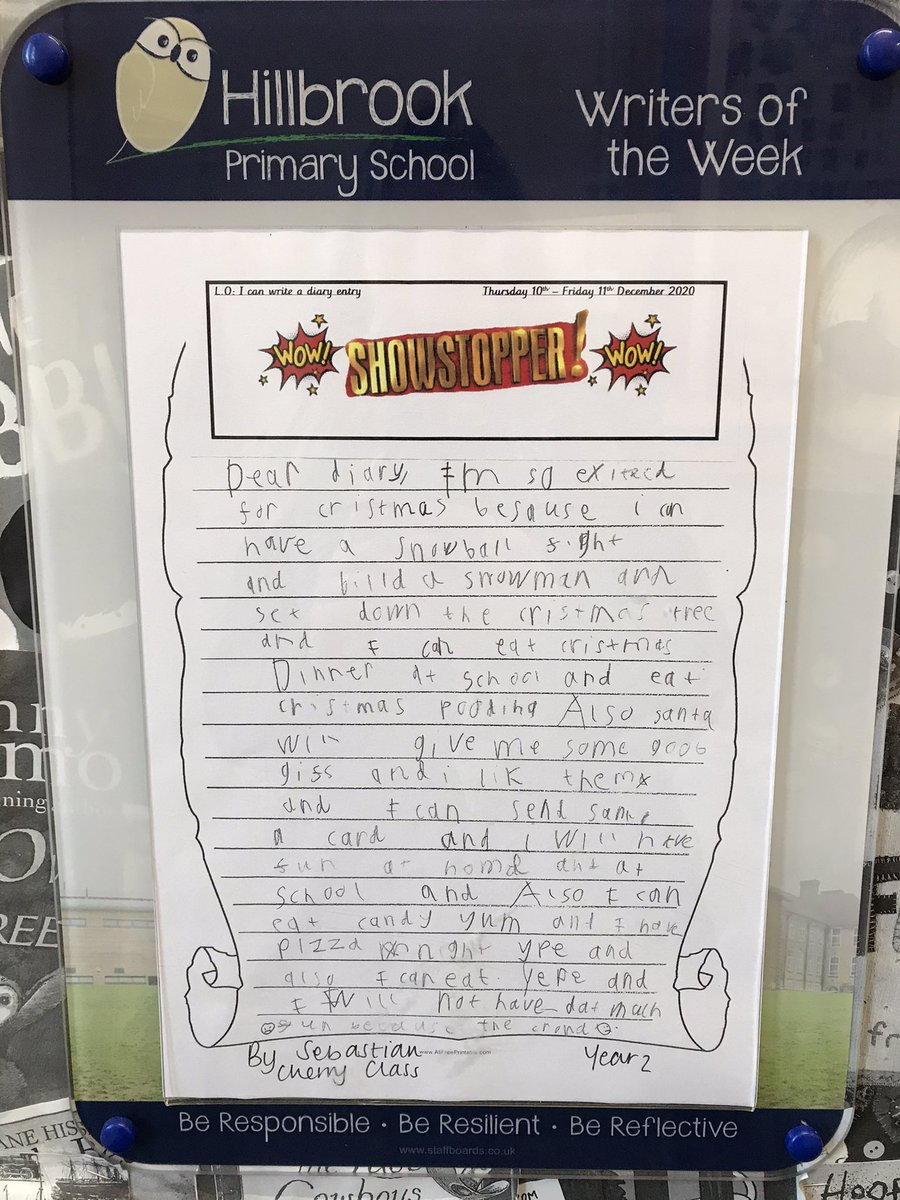 Hillbrook
Primary School
Writers of
the Week
L.O: I can write a diary entry
Thursday 10th – Friday 11th December 2020
WOW! SHOWSTOPPER! WOW!
Dear diary, I'm so exiteed
for cristmas besause i can
have a snowball fight
and billd a snowman and
set down the cristmas tree
and I can eat cristmas
Dinner at school and eat
cristmas podding Also santa
will give me some goob
giss and i lik them
and I can send
a card and i will have
fun at homd and at
school and Also I can
eat candy yum and I have
pizza night ype and
also I can eat yepe and
I Will not have dat mach
fun because the
By Sebastian
Cherry Class
Year 2
www.AllFreePrintable.com
Be Responsible · Be Resilient · Be Reflective
www.staffboards.co.uk
Cowboys